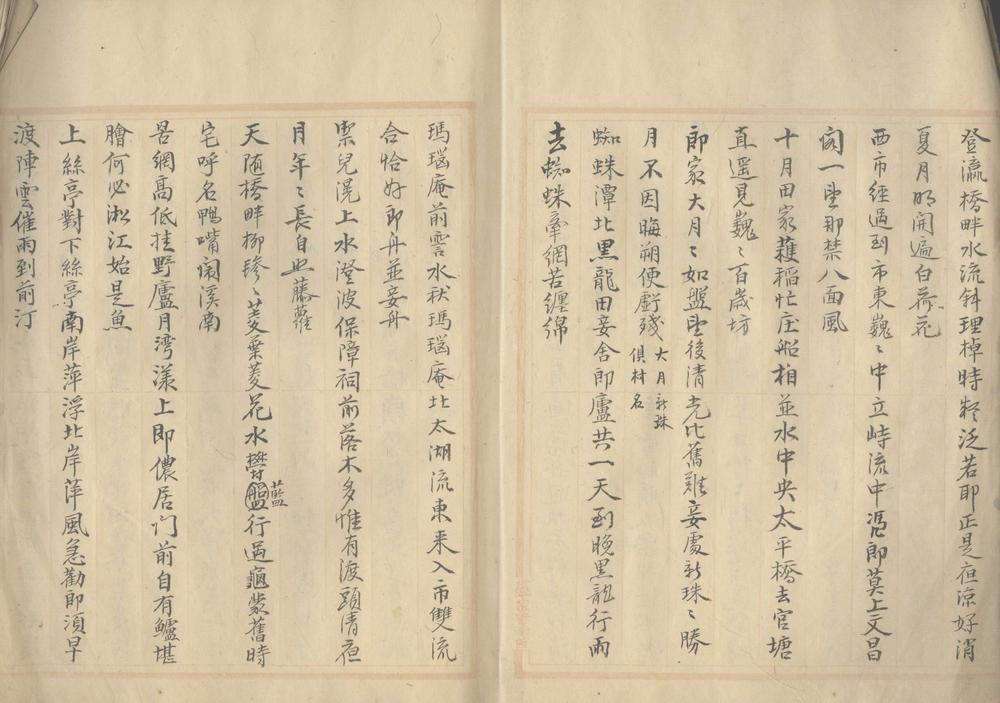 登瀛橋畔水流斜理棹時疑泛若耶正是夜涼好消
夏月明開遍白荷花
西市經過到市東巍〻中立峙流中馮郎莫上文昌
閣一望那禁八面風
十月田家穫稻忙庄船相並水中央太平橋去官塘
直遥見巍〻百歲坊
郎家大月〻如盤望後清光比舊難妾處新珠〻勝
月不因晦朔便虧殘大月新珠
俱村名
蜘蛛潭北黑龍田妾舍郎廬共一天到晚黑龍行雨
去蜘蛛牽網苦纏綿
瑪瑙庵前霅水秋瑪瑙庵北太湖流東来入市雙流
合恰好郎舟並妾舟
寀兒滉上水澄波保障祠前落木多惟有渡頭情夜
月年〻長自照藤蘿
天随橋畔柳毿〻菱葉菱花水蔚藍行過龜蒙舊時
宅呼名鴨嘴闹溪南
罟網高低挂野廬月湾漾上即儂居门前自有鱸堪
膾何必淞江始是魚
上絲亭對下絲亭南岸萍浮北岸萍風急勸郎須早
渡陣雲催雨到前汀